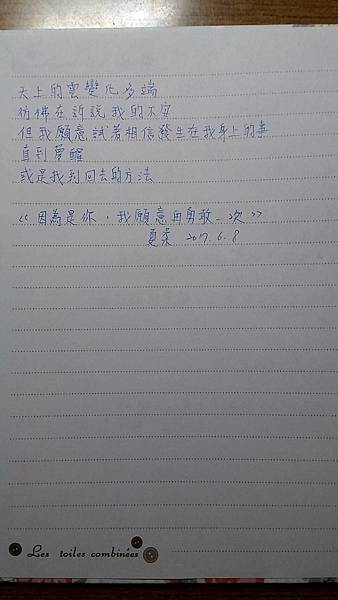 天上的雲變化多端
彷彿在訴說我的不安
但我願意試著相信發生在我身上的事
直到夢醒
或是找到回去的方法
<<因為是你，我願意再勇敢一次>>
夏柔 2017.6.8
Les toiles combinées